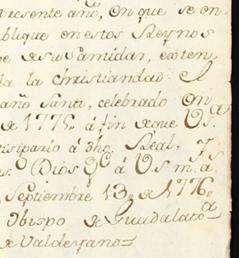 resente año, en que se en
blique en estos Reynos
e de su Santidad, exten
da la christiandad el
año Santo, celebrado en
de 1775. á fin de que V.S.
tisiparlo á dho. Real, y
s. Dios g.e á V.S. m.s a.s
Septiembre 13. de 1776.
Obispo de Guadalax.a
de Valdejano=